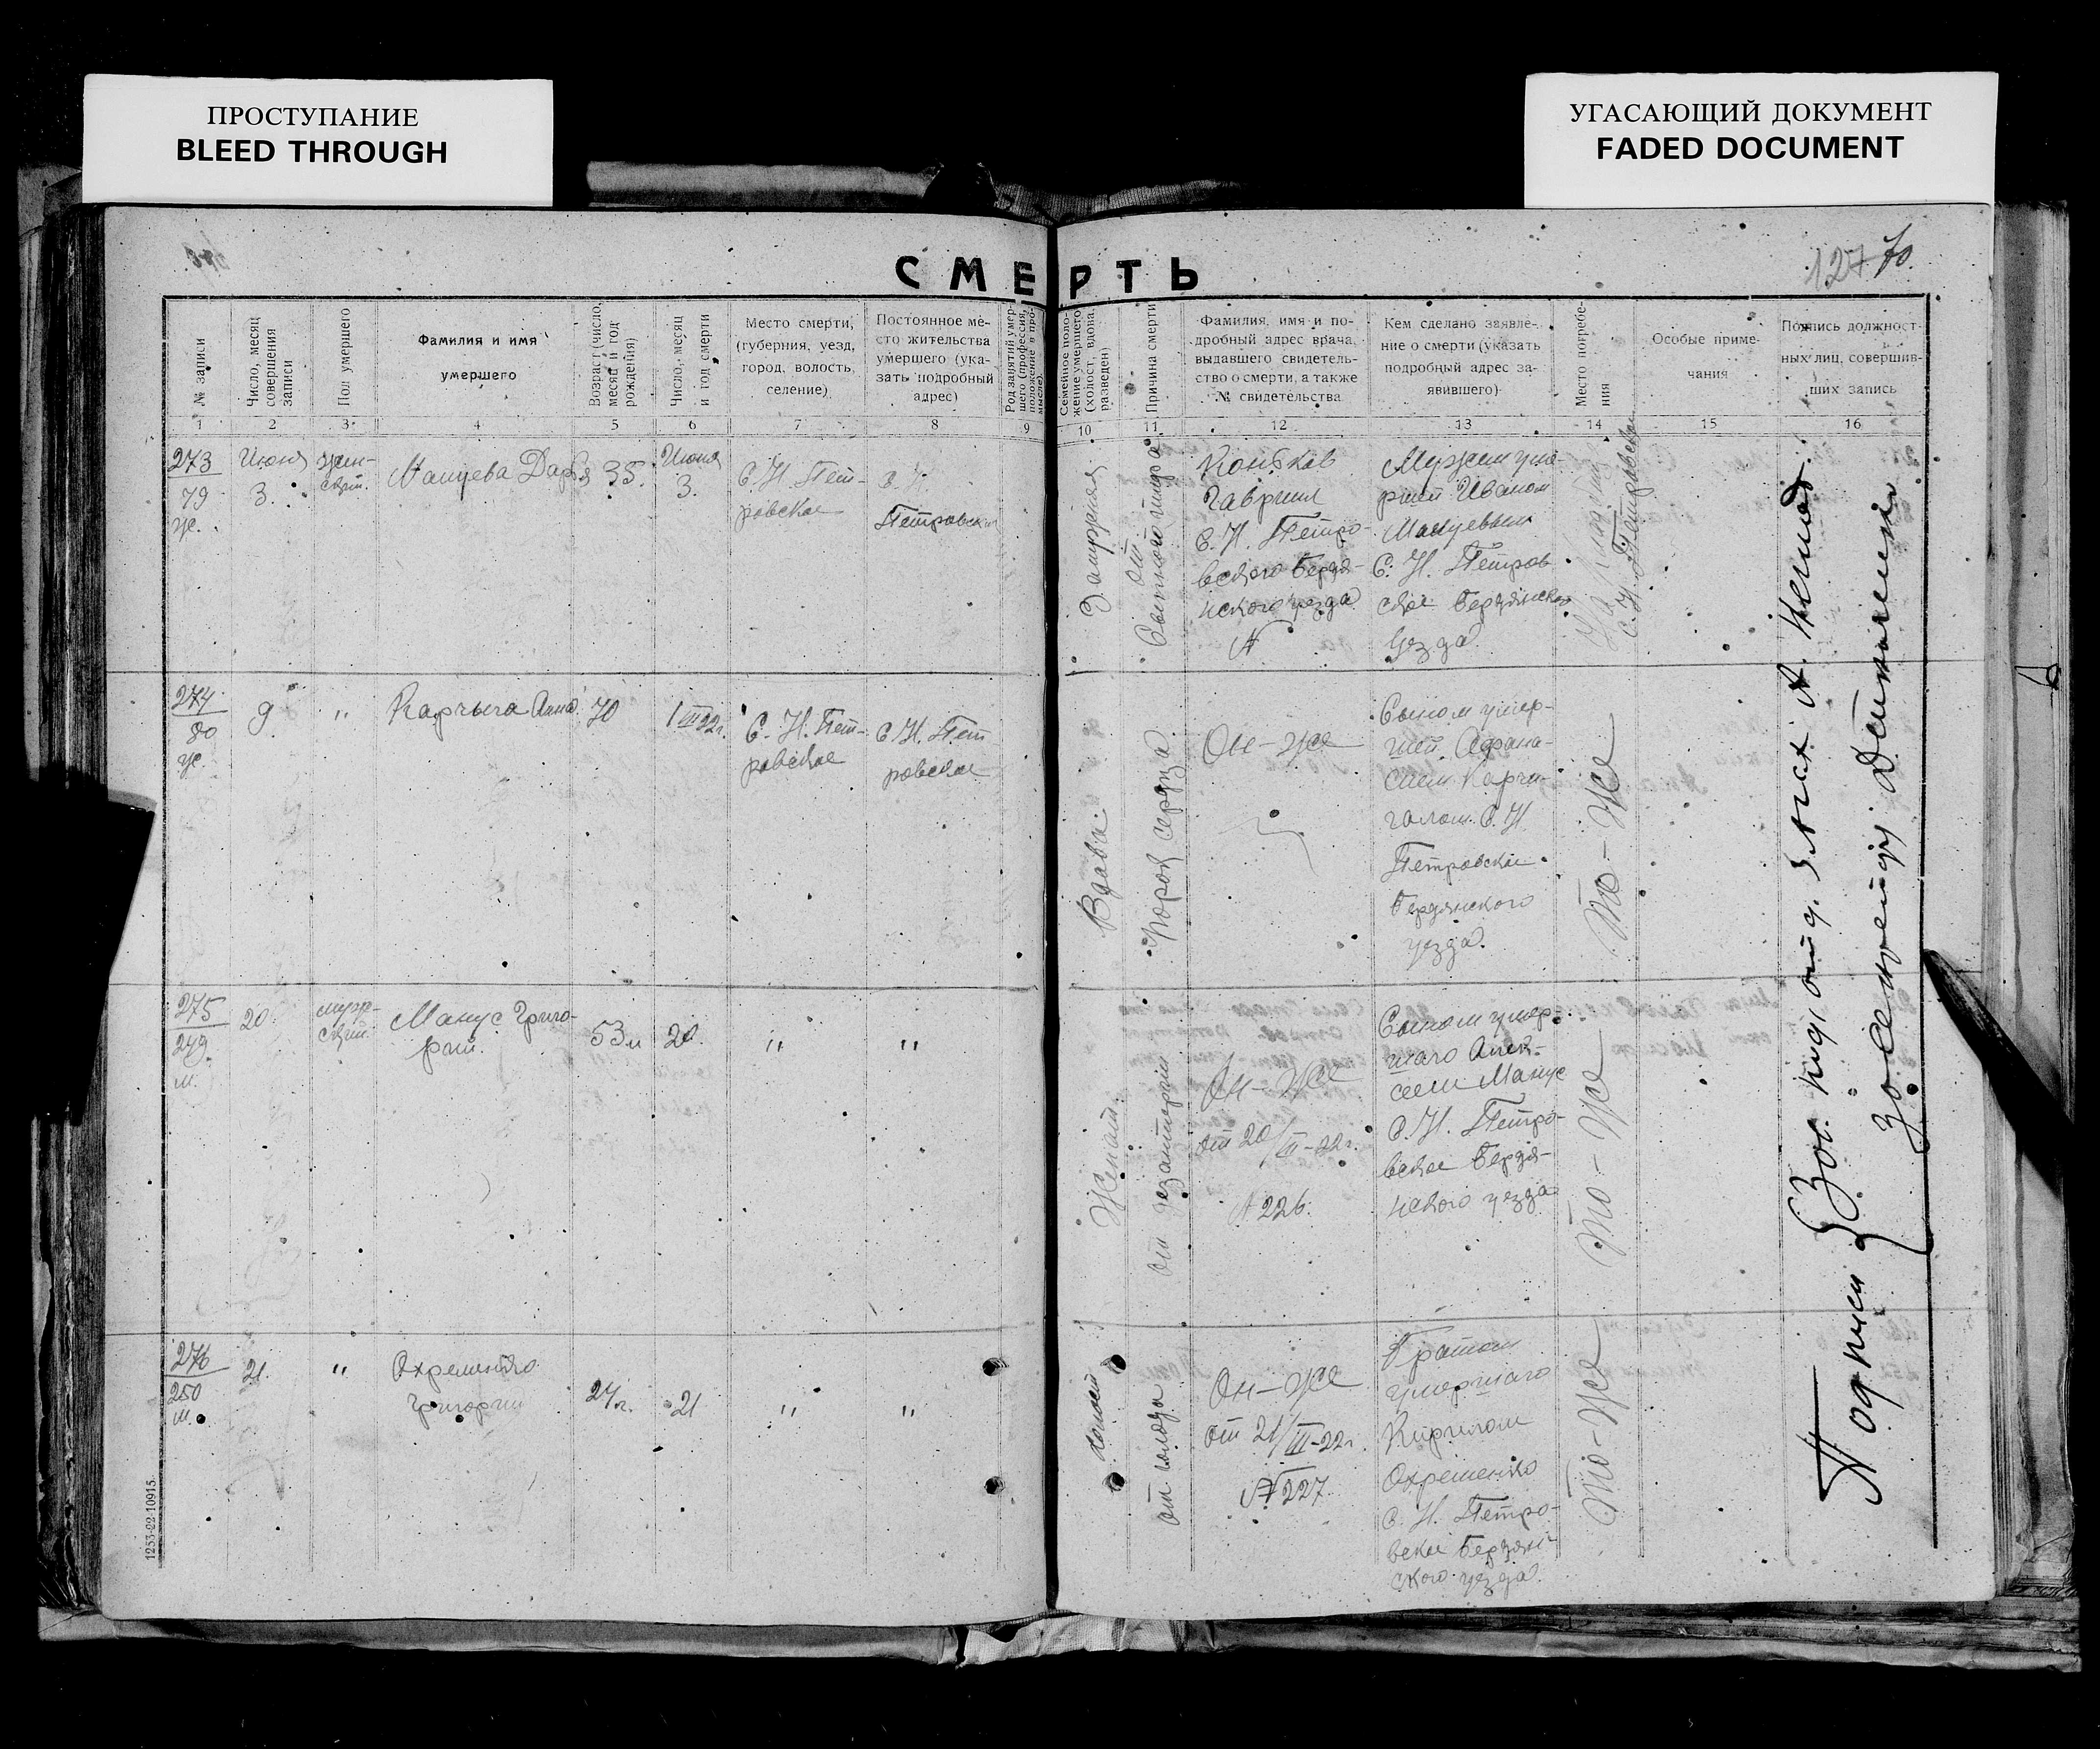 ПРОСТУПАНИЕ
BLEED THROUGH
УГАСАЮЩИЙ ДОКУМЕНТ
FADED DOCUMENT
СМЕРТЬ
127 70.
№ записи
Число, месяц
совершения
записи
Пол умершего
Фамилия и имя
умершего
Возраст (число,
месяц и год
рождения)
Число, месяц
и год смерти
Место смерти,
(губерния, уезд,
город, волость,
селение)
Постоянное ме-
сто жительства
умершего (ука-
зать подробный
адрес)
Род занятий умер-
шего (профессия,
положение в про-
мысле).
Семейное поло-
жение умершего
(холост, вдова,
разведен)
Причина смерти
Фамилия, имя и по-
дробный адрес врача,
выдавшего свидетель-
ство о смерти, а также
№ свидетельства
Кем сделано заявле-
ние о смерти (указать
подробный адрес за-
явившего)
Место погребе-
ния
Особые приме-
чания
Подпись должност-
ных лиц, совершив-
ших запись
1 2 3 4 5 6 7 8 9 10 11 12 13 14 15 16
273
79
ж.
Июня
3.
жен-
ский.
Мануева Дарья
35.
Июня
3.
С. Н. Пет-
ровское
С. Н.
Петровск
Замужняя
от
сыпного тифа
Коньков
Гавриил
С. Н. Петро-
вского Бердя-
нского уезда
№
Мужем уме-
ршей Иваном
Мануевым
С. Н. Петров
ское Бердянско
уезда
С. Н. Петровско
274
80
ж.
9
"
Карчыга Анна
70
1 III 22г.
С. Н. Пет-
ровское
С. Н. Пет
ровское
Вдова.
Порок сердца
Он-же
Сыном умер-
шей Афана-
сием Карчи-
галом С. Н.
Петровски
Бердянского
уезда.
То-же
275
249
м.
20.
муж-
ский.
Манус Григо-
рий.
53
20.
"
"
Женат.
от дезантерии
Он-же
от 20/III-22г.
№ 226.
Сыном умер-
шаго Алек-
сеем Манус
С. Н. Петро-
вское Бердя-
нского уезда
То-же
276
250
м.
21.
"
Охременко
Григорий
24 г.
21
"
"
Холост
от голода
Он-же
от 21/III-22г.
№ 227.
Братом
умершаго
Кирилом
Охременко
С. Н. Петро-
вски Бердян-
ского уезда.
То-же
Подписи
1253-22 10915.